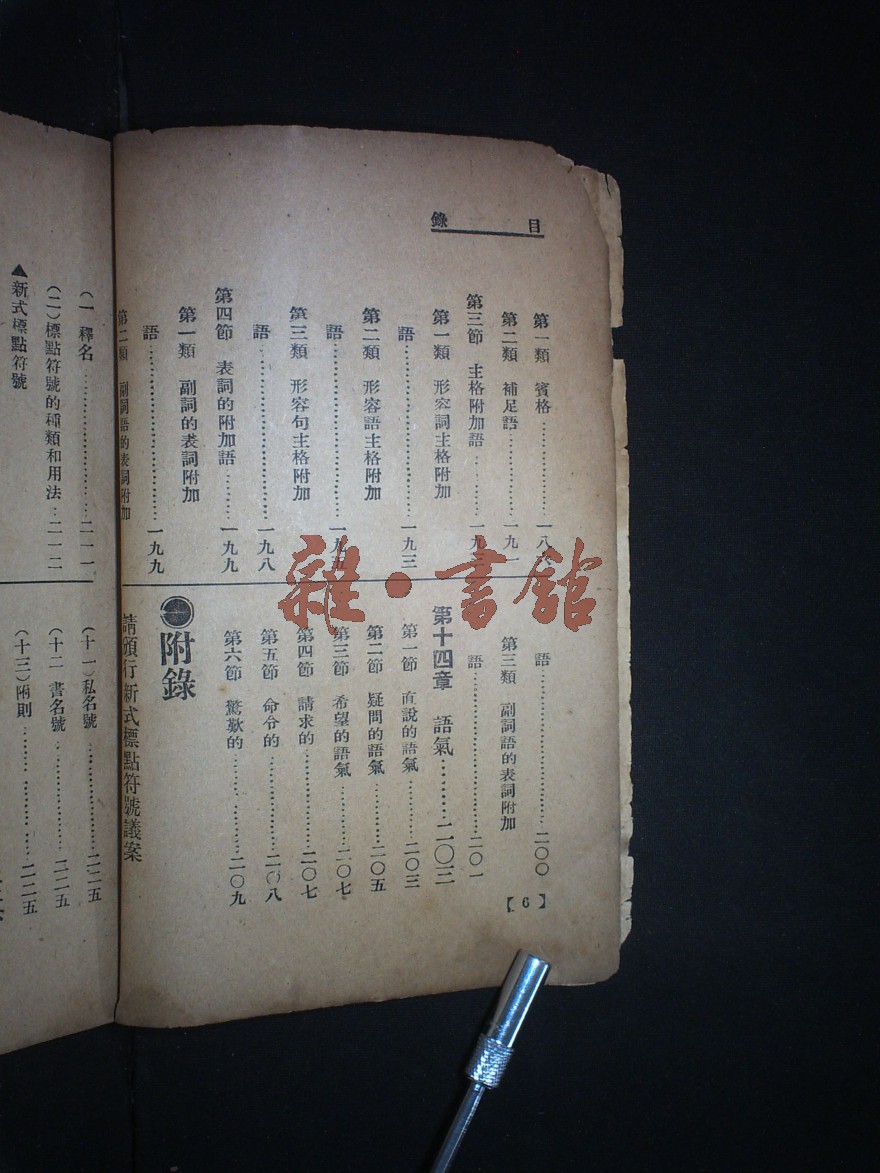 目錄
第一類 賓格
第二類 補足語……一九一
第三節 主格附加語……
第一類 形容詞主格附加
語……一九三
第二類 形容語主格附加
語……一九五
第三類 形容句主格附加
語……一九八
第四節 表詞的附加語……一九九
第一類 副詞的表詞附加
語……一九九
第二類 副詞語的表詞附加
語……二〇〇
第三類 副詞語的表詞附加
語……二〇一
第十四章 語氣……二〇三
第一節 直說的語氣……二〇三
第二節 疑問的語氣……二〇五
第三節 希望的語氣……二〇七
第四節 請求的……二〇七
第五節 命令的……二〇八
第六節 驚歎的……二〇九
附錄
請頒行新式標點符號議案
【6】
(一 釋名……二一一
(二)標點符號的種類和用法…二一二
▲新式標點符號
(十一)私名號……二二五
(十二 書名號……二二五
(十三)附則……二二五
雜·書館